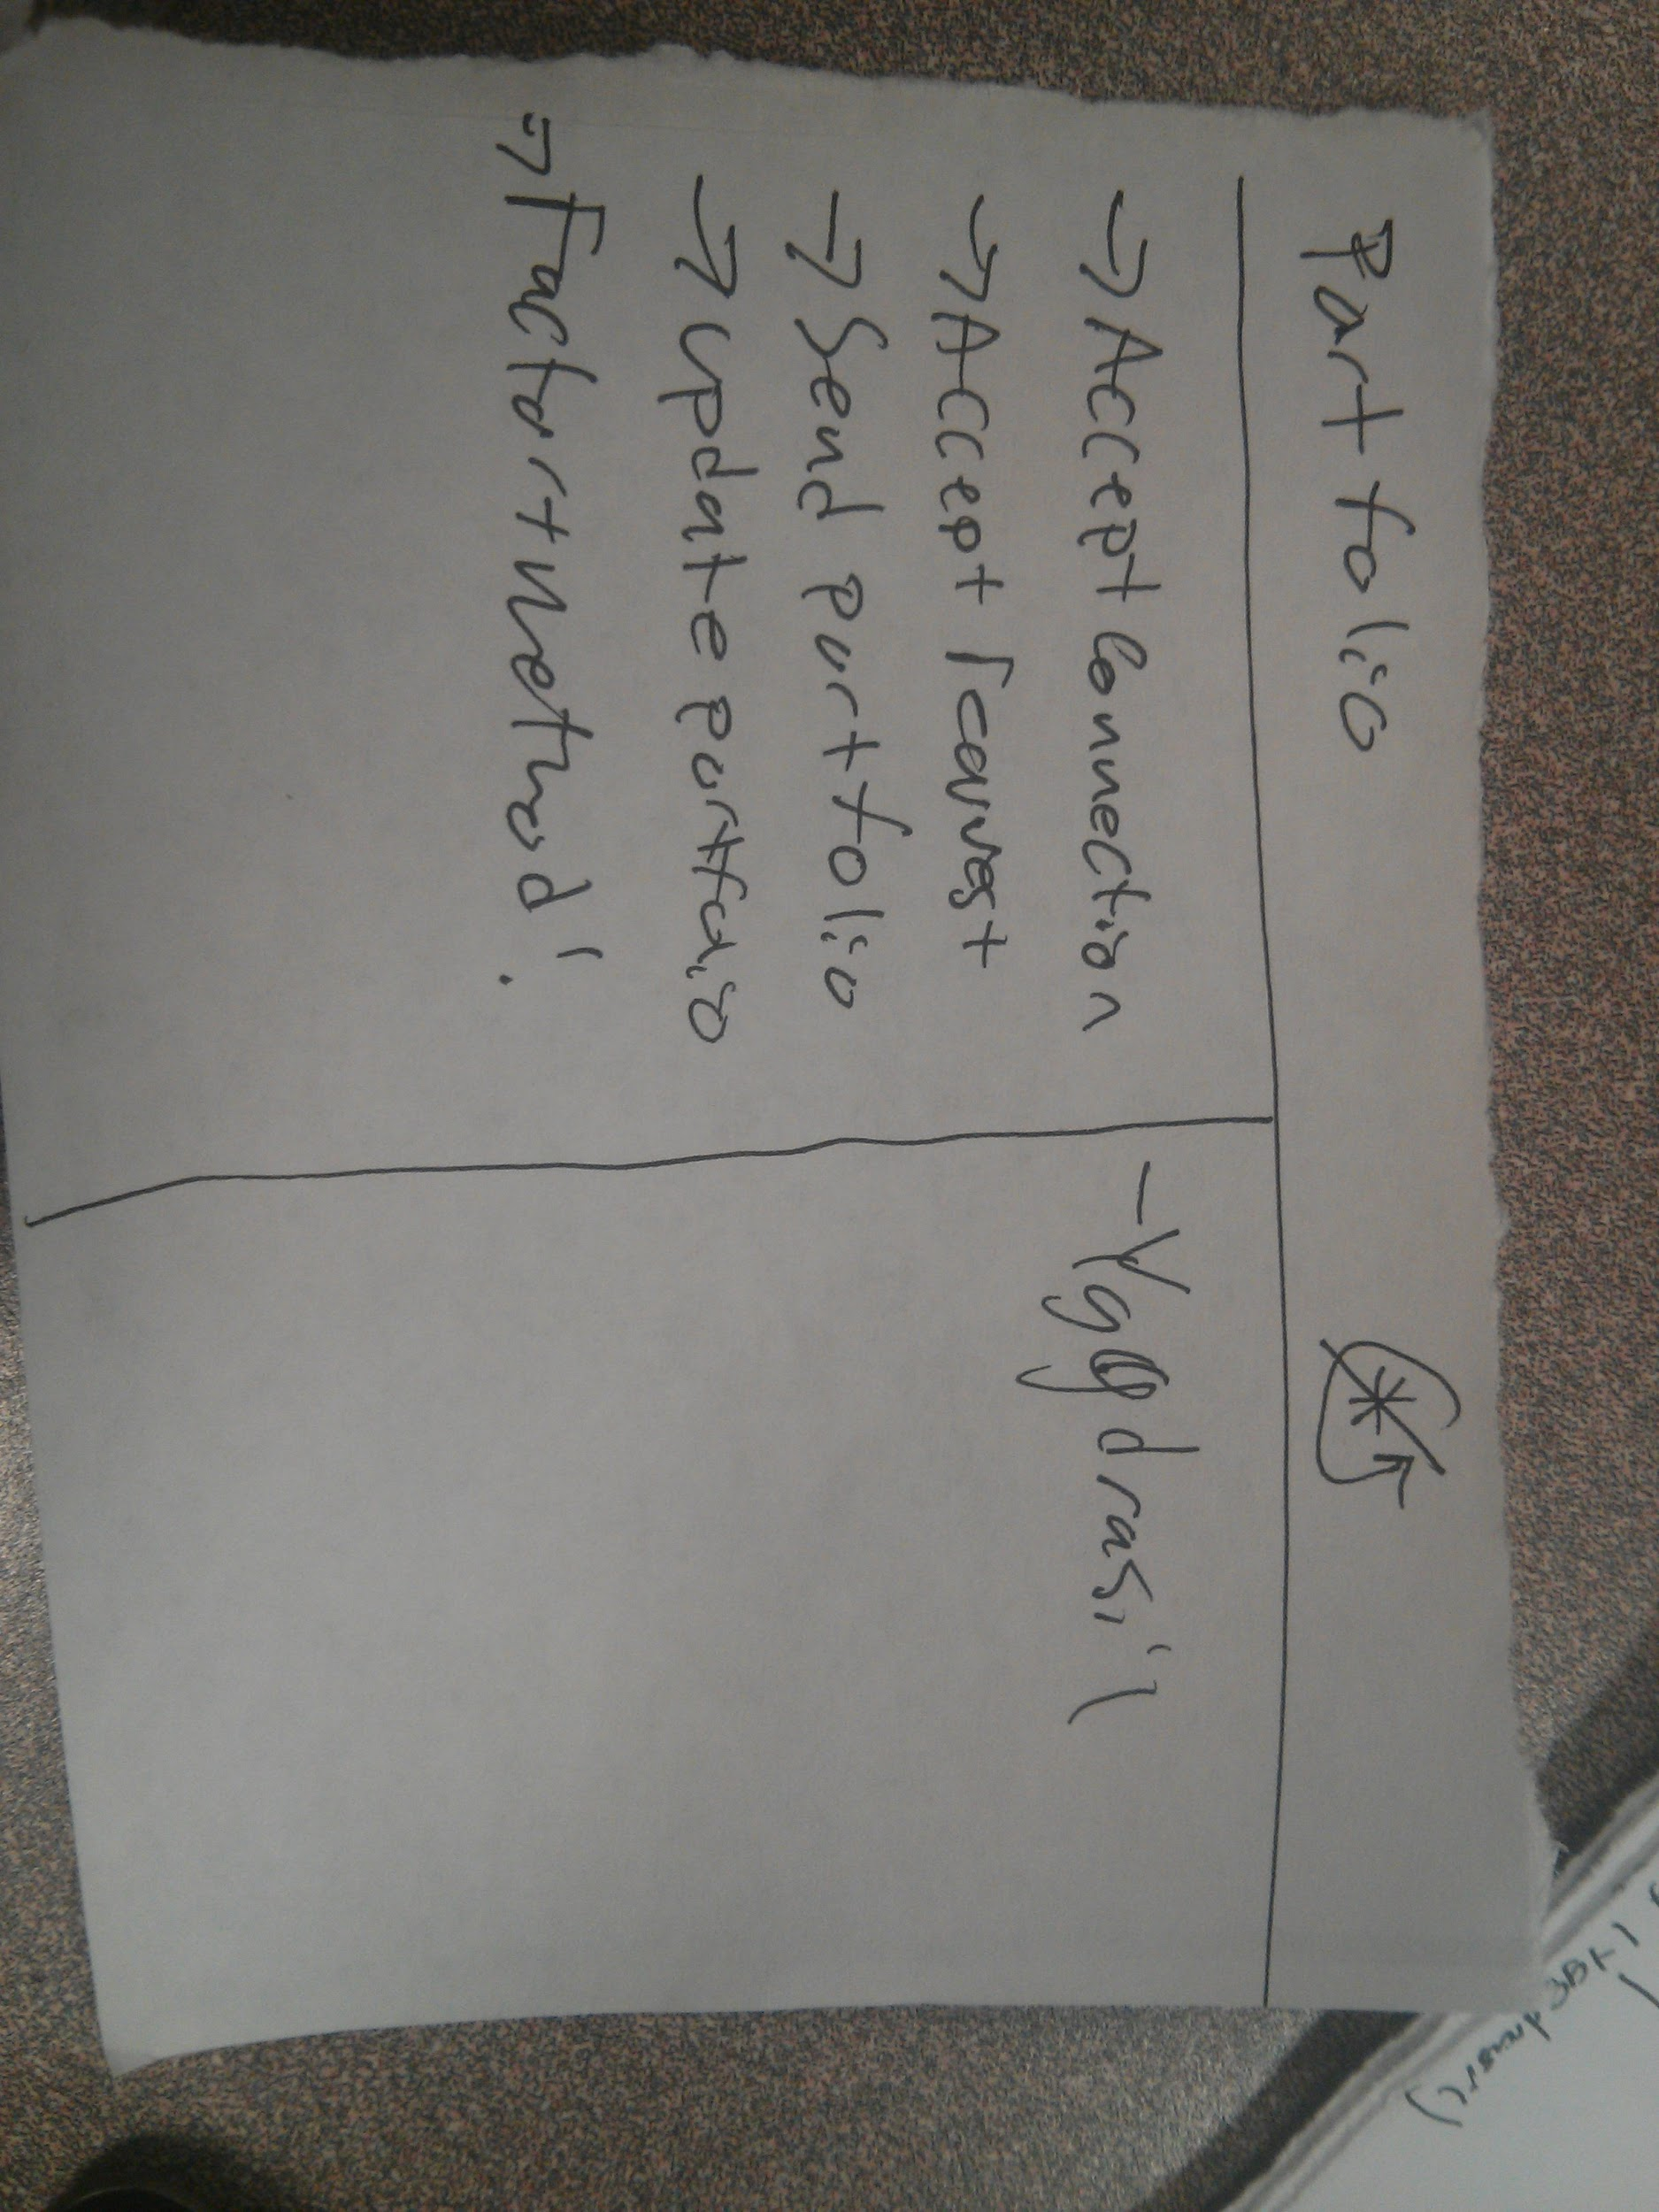 Portfolio
→ Accept Connection
→ Accept request
→ Send portfolio
→ Update portfolio
⇒ Factor + Method!
- Yggdrasil